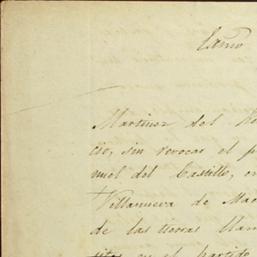 Martinez del
cio, sin revocar el p
miel del Castillo, en
Villanueva de Ma
de las tierras llam
en el partido